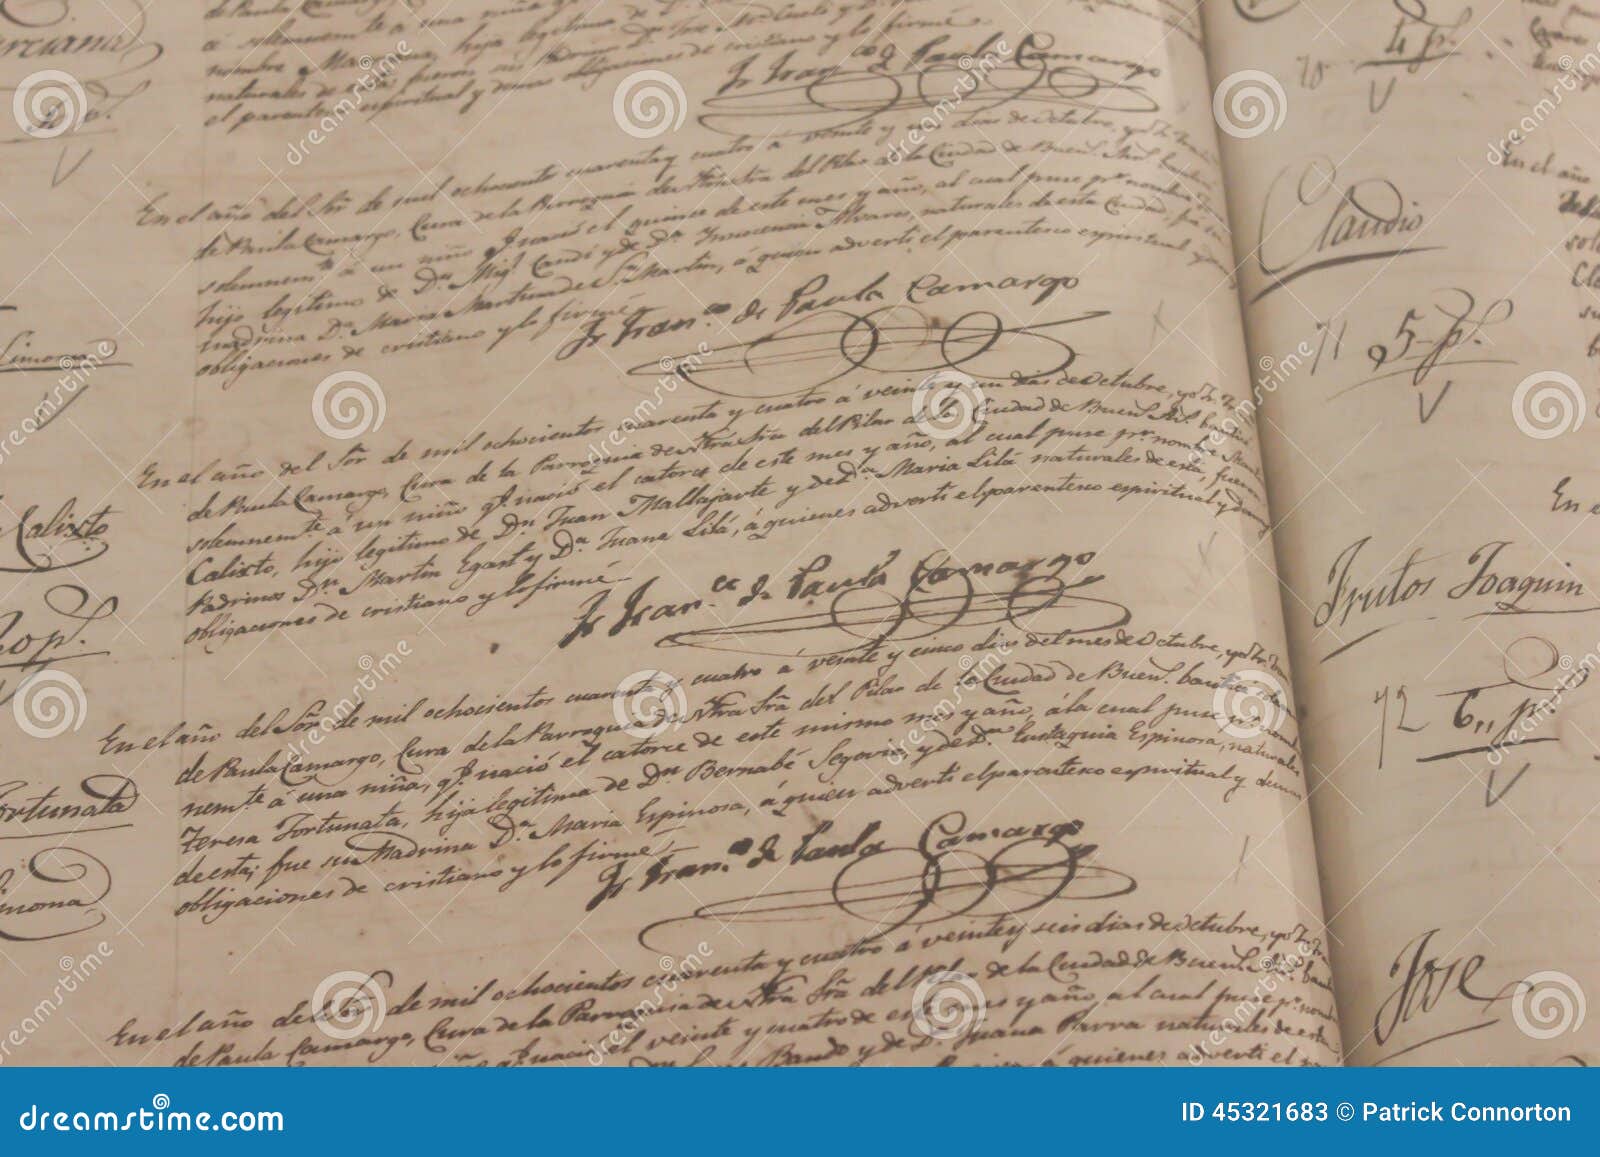 de Paula Camargo, Cura de la Parroquia
á solemnem.te á una niña
nombre Marciana, hija legitima de
naturales de esta; fueron sus Padrinos Dn. José
el parentesco espiritual y demas obligaciones de cristiano y lo firmé.
Fr. Fran.co de Paula Camargo
En el año del Sór. de mil ochocientos cuarenta y cuatro á veinte y un dias de Octubre, yo Fr. Fran
de Paula Camargo, Cura de la Parroquia de Ntra Sra del Pilar de la Ciudad de Buen.s Air.s bautice
solemnem.te á un niño q.e nació el quince de este mes y año, al cual puse p.r nombre
hijo legitimo de Dn. Mig.l Candi y de Da. Inocencia Alvares, naturales de esta Ciudad, fue su
madrina Da. Maria Martina de Sn. Martin, á quien advertí el parentesco espiritual y
obligaciones de cristiano y lo firmé
Fr. Fran.co de Paula Camargo
En el año del Sór. de mil ochocientos cuarenta y cuatro á veinte y un dias de Octubre, yo Fr. Fran
de Paula Camargo, Cura de la Parroquia de Ntra Sra del Pilar de la Ciudad de Buen.s Ai.s bautice
solemnem.te á un niño q.e nació el catorce de este mes y año, al cual puse p.r nombre
Calixto, hijo legitimo de Dn. Juan Mallajarte y de Da. Maria Lilá naturales de esta; fueron
Padrinos Dn. Martin Egart y Da. Juana Lilá, á quienes advertí el parentesco espiritual y demas
obligaciones de cristiano y lo firmé
Fr. Fran.co de Paula Camargo
En el año del Sór. de mil ochocientos cuarenta y cuatro á veinte y cinco dias del mes de Octubre, yo Fr. Fran
de Paula Camargo, Cura de la Parroquia de Ntra Sra del Pilar de la Ciudad de Buen.s bautice solem
nem.te á una niña, q.e nació el catorce de este mismo mes y año, á la cual puse p.r nomb
Teresa Fortunata, hija legitima de Dn. Bernabé Segovia, y de Da. Eustaquia Espinosa, naturales
de esta; fue su Madrina Da. Maria Espinosa, á quien advertí el parentesco espiritual y demas
obligaciones de cristiano y lo firmé
Fr. Fran.co de Paula Camargo
En el año del Sór. de mil ochocientos cuarenta y cuatro á veinte y seis dias de Octubre, yo Fr. Fr
de Paula Camargo, Cura de la Parroquia de Ntra Sra del Pilar de la Ciudad de Buen.s Ai.s bauti
q.e nació el veinte y cuatro de este mes y año, al cual puse p.r nomb
Bando y de Da. Juana Parra naturales de esta
á quienes advertí el
rciana
Simona
Calixto
20 p.
Fortunata
imona
70
4 p.
Claudio
71
5 p.
Frutos Joaquin
72
6 p.
Jose
En el año
En e
dreamstime.com
ID 45321683 © Patrick Connorton